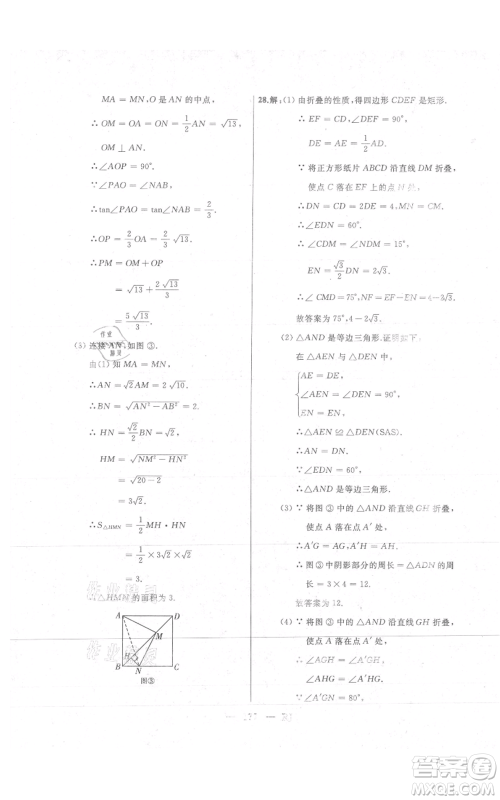 MA = MN, O 是 AN 的中点,
∴ OM = OA = ON = 1/2 AN = √13,
OM ⊥ AN.
∴ ∠AOP = 90°.
∵ ∠PAO = ∠NAB,
∴ tan∠PAO = tan∠NAB = 2/3.
∴ OP = 2/3 OA = 2√13/3.
∴ PM = OM + OP
= √13 + 2√13/3
= 5√13/3.
连接 AN, 如图 ③.
由 (1) 知 MA = MN,
∴ AN = √2 AM = 2√10.
∴ BN = √(AN² − AB²) = 2.
∴ HN = √2/2 BN = √2,
HM = √(NM² − HN²)
= √(20 − 2)
= 3√2.
∴ S△HMN = 1/2 MH · HN
= 1/2 × 3√2 × √2
= 3.
∴ △HMN 的面积为 3.
A
D
M
H
B
N
C
图③
28.解: (1) 由折叠的性质, 得四边形 CDEF 是矩形.
∴ EF = CD, ∠DEF = 90°,
DE = AE = 1/2 AD.
∵ 将正方形纸片 ABCD 沿直线 DM 折叠,
使点 C 落在 EF 上的点 N 处,
∴ DN = CD = 2DE, MN = CM.
∴ ∠EDN = 60°.
∴ ∠CDM = ∠NDM = 15°,
EN = √3/2 DN = 2√3.
∴ ∠CMD = 75°, NF = EF − EN = 4 − 2√3.
故答案为 75°, 4 − 2√3.
(2) △AND 是等边三角形. 证明如下:
在
AE = DE,
∠AEN = ∠DEN = 90°,
EN = EN,
∴ △AEN ≌ △DEN(SAS).
∴ AN = DN.
∵ ∠EDN = 60°,
∴ △AND 是等边三角形.
(3) ∵ 将图 ② 中的 △AND 沿直线 GH 折叠,
使点 A 落在点 A′ 处,
∴ A′G = AG, A′H = AH.
∴ 图 ③ 中阴影部分的周长 = △ADN 的周长
= 3 × 4 = 12.
故答案为 12.
(4) ∵ 将图 ③ 中的 △AND 沿直线 GH 折叠,
使点 A 落在点 A′ 处,
∴ ∠AGH = ∠A′GH,
∠AHG = ∠A′HG.
∵ ∠A′GN = 80°,